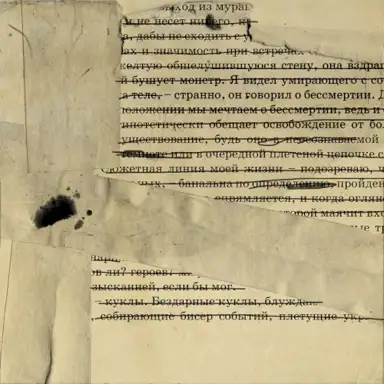 ыход из мура
м не несет ничего, к
а, дабы не сходить с у
ах и значимость при встречах
желтую облупившуюся стену, она вздра
й бушует монстр. Я видел умирающего с со
а теле, – странно, он говорил о бессмертии. Д
положении мы мечтаем о бессмертии, ведь и
гипотетически обещает освобождение от бо
уществование, будь оно в неосознаваемой
темноте или в очередной плетеной цепочке с
южетная линия моей жизни – подозреваю, ч
– банальна по определению, пройден
выпрямляется, и когда оглян
торой маячит вхо
ые тр
нара
ов ли? героев?
зысканней, если бы мог.
– куклы. Бездарные куклы, блужда
, собирающие бисер событий, плетущие укр